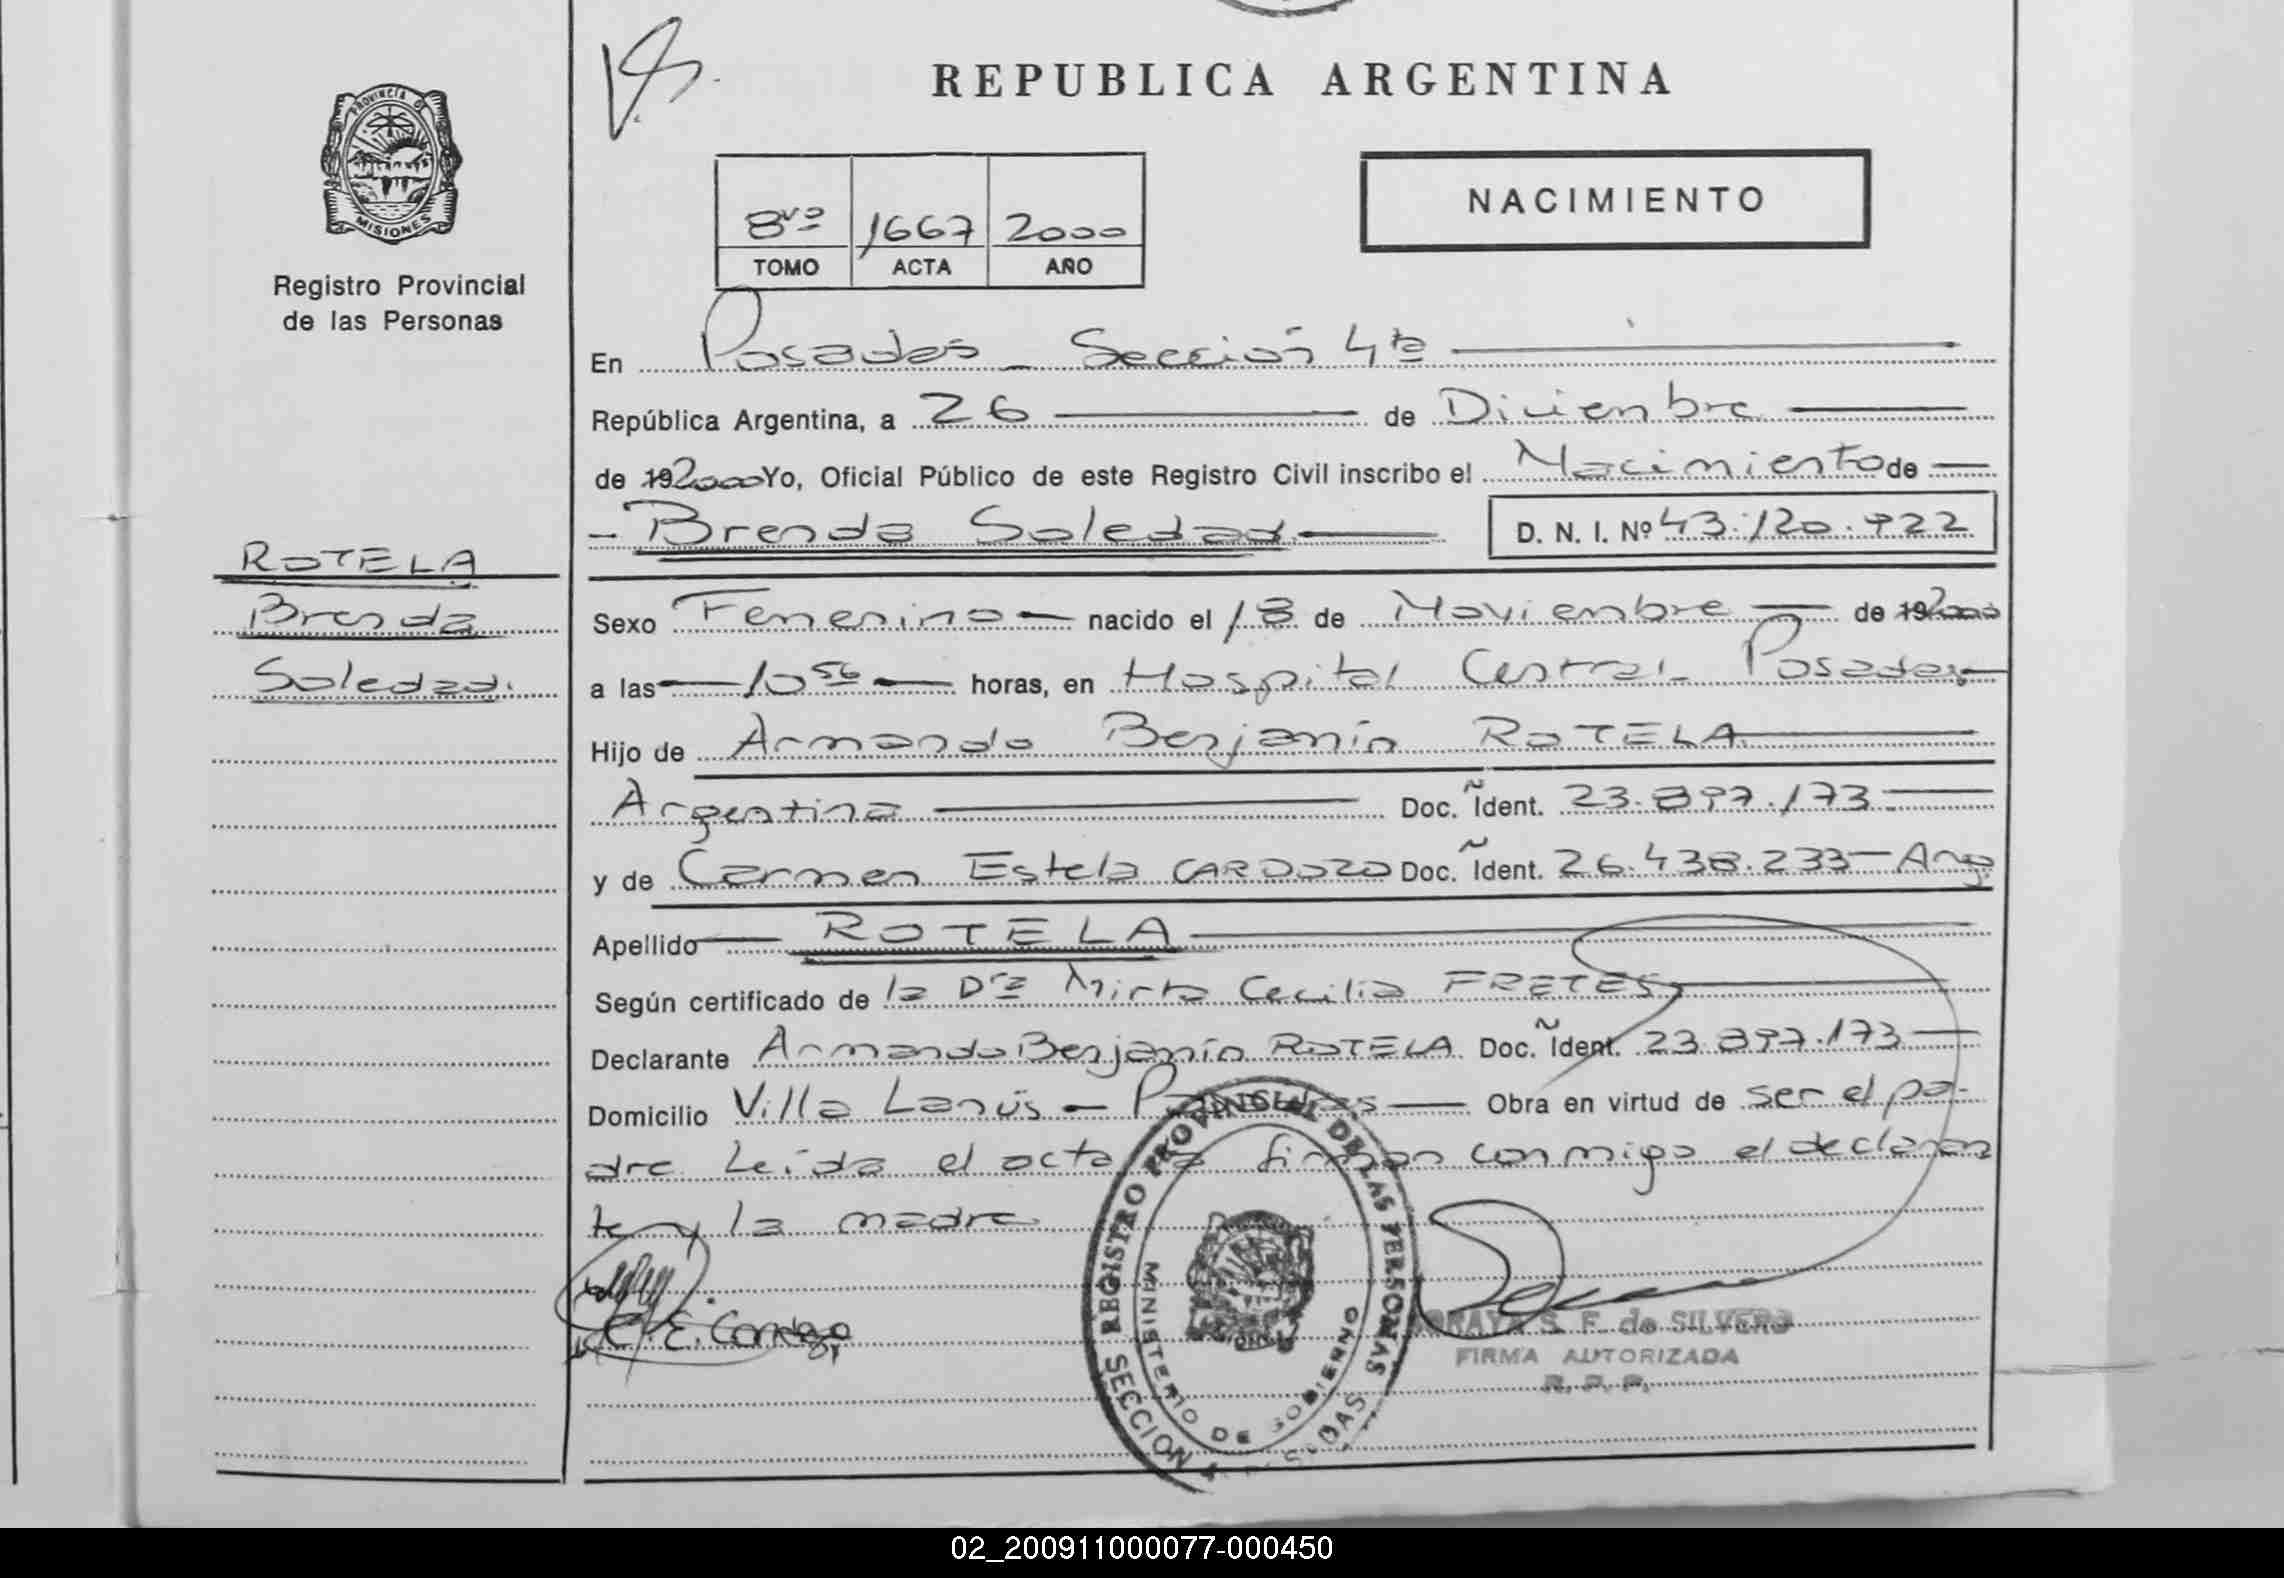 REPUBLICA ARGENTINA
PROVINCIA DE
MISIONES
Registro Provincial
de las Personas
NACIMIENTO
8vo 1667 2000
TOMO ACTA AÑO
En Posadas - Sección 4ta
República Argentina, a 26 de Diciembre
de 192000 Yo, Oficial Público de este Registro Civil inscribo el Nacimiento de
- Brenda Soledad D. N. I. Nº 43.120.922
ROTELA
Brenda
Soledad.
Sexo Femenino nacido el 18 de Noviembre de 192000
a las 10 56 horas, en Hospital Central Posadas
Hijo de Armando Benjamín ROTELA
Argentina Doc. Ident. 23.897.173
y de Carmen Estela CARDOZO Doc. Ident. 26.438.233 - Arg
Apellido ROTELA
Según certificado de la Dra Mirta Cecilia FRETES
Declarante Armando Benjamín ROTELA Doc. Ident. 23.897.173
Domicilio Villa Lanús - Posadas Obra en virtud de ser el pa-
dre Leída el acta la firman conmigo el declaran
te y la madre
C. E. Cardozo
REGISTRO PROVINCIAL DE LAS PERSONAS
MINISTERIO DE GOBIERNO
SECCION 4 POSADAS
SORAYA S. F. de SILVERO
FIRMA AUTORIZADA
R. P. P.
02_200911000077-000450